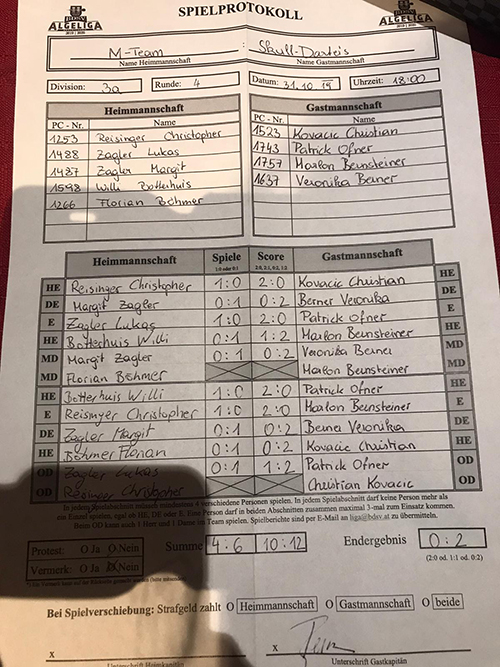 ALGELIGA
SPIELPROTOKOLL
ALGELIGA
M-Team : Skull-Darteis
Name Heimmannschaft Name Gastmannschaft
Division: 3a Runde: 4 Datum: 31.10.19 Uhrzeit: 18:00
Heimmannschaft Gastmannschaft
PC - Nr. Name PC - Nr. Name
1253 Reisinger Christopher 1523 Kovacic Christian
1488 Zagler Lukas 1743 Patrick Ofner
1487 Zagler Margit 1757 Marlon Beunsteiner
1598 Willi Botterhuis 1637 Veronika Berner
1266 Florian Böhmer
Heimmannschaft Spiele Score Gastmannschaft
1:0 oder 0:1 2:0, 2:1, 0:2, 1:2
HE Reisinger Christopher 1:0 2:0 Kovacic Christian HE
DE Margit Zagler 0:1 0:2 Berner Veronika DE
E Zagler Lukas 1:0 2:0 Patrick Ofner E
HE Botterhuis Willi 0:1 1:2 Marlon Beunsteiner HE
MD Margit Zagler 0:1 0:2 Veronika Berner MD
MD Florian Böhmer Marlon Beunsteiner MD
HE Botterhuis Willi 1:0 2:0 Patrick Ofner HE
E Reisinger Christopher 1:0 2:0 Marlon Beunsteiner E
DE Zagler Margit 0:1 0:2 Berner Veronika DE
HE Böhmer Florian 0:1 0:2 Kovacic Christian HE
OD Zagler Lukas 0:1 1:2 Patrick Ofner OD
OD Reisinger Christopher Christian Kovacic OD
In jedem Spielabschnitt müssen mindestens 4 verschiedene Personen spielen. In jedem Spielabschnitt darf keine Person mehr als
ein Einzel spielen, egal ob HE, DE oder E. Eine Person darf in beiden Abschnitten zusammen maximal 3-mal zum Einsatz kommen.
Beim OD kann auch 1 Herr und 1 Dame im Team spielen. Spielberichte sind per E-Mail an liga@bdsv.at zu übermitteln.
Protest: O Ja O Nein Summe 4:6 10:12 Endergebnis 0:2
Vermerk: O Ja O Nein (2:0 od. 1:1 od. 0:2)
Bei Spielverschiebung: Strafgeld zahlt O Heimmannschaft O Gastmannschaft O beide
x x
Unterschrift Heimkapitän Unterschrift Gastkapitän